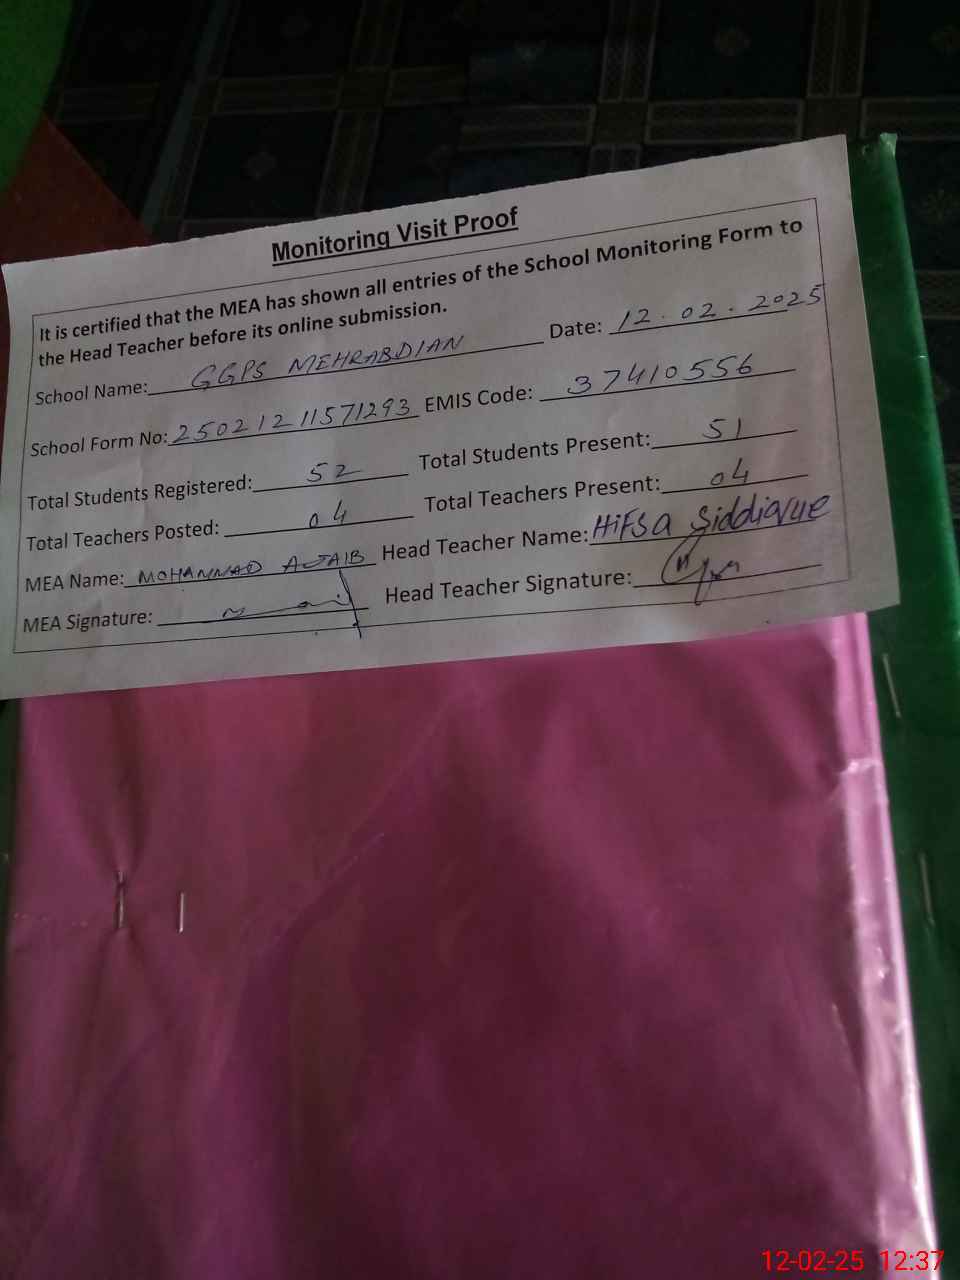 Monitoring Visit Proof
It is certified that the MEA has shown all entries of the School Monitoring Form to
the Head Teacher before its online submission.
School Name: GGPS MEHRABDIAN Date: 12.02.2025
School Form No: 25021211571293 EMIS Code: 37410556
Total Students Registered: 52 Total Students Present: 51
Total Teachers Posted: 04 Total Teachers Present: 04
MEA Name: MOHAMMAD AJAIB Head Teacher Name: HiFSa Siddiqque
MEA Signature: Head Teacher Signature:
12-02-25 12:37